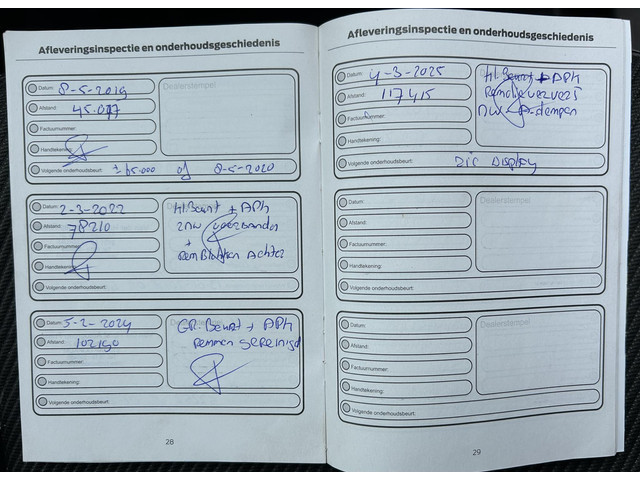 Afleveringsinspectie en onderhoudsgeschiedenis
Datum: 8-5-2019
Dealerstempel
Afstand: 45.017
Factuurnummer:
Handtekening:
Volgende onderhoudsbeurt: ± 65.000 of 8-5-2020
Datum: 2-3-2022
Kl. Beurt + APK
Afstand: 78210
2 nw voorbanden
Factuurnummer:
+
Handtekening:
Remblokken Achter
Volgende onderhoudsbeurt:
Datum: 5-2-2024
GR. Beurt + APK
Afstand: 102190
Remmen gereinigd
Factuurnummer:
Handtekening:
Volgende onderhoudsbeurt:
28
Afleveringsinspectie en onderhoudsgeschiedenis
Datum: 4-3-2025
Kl. Beurt + APK
Afstand: 117415
Remolie ververst
Factuurnummer:
nw
Handtekening:
Volgende onderhoudsbeurt: Zie Display
Datum:
Dealerstempel
Afstand:
Factuurnummer:
Handtekening:
Volgende onderhoudsbeurt:
Datum:
Dealerstempel
Afstand:
Factuurnummer:
Handtekening:
Volgende onderhoudsbeurt:
29